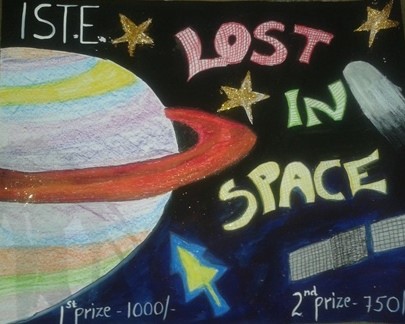 ISTE.
LOST
IN
SPACE
1st prize - 1000/-
2nd prize - 750/